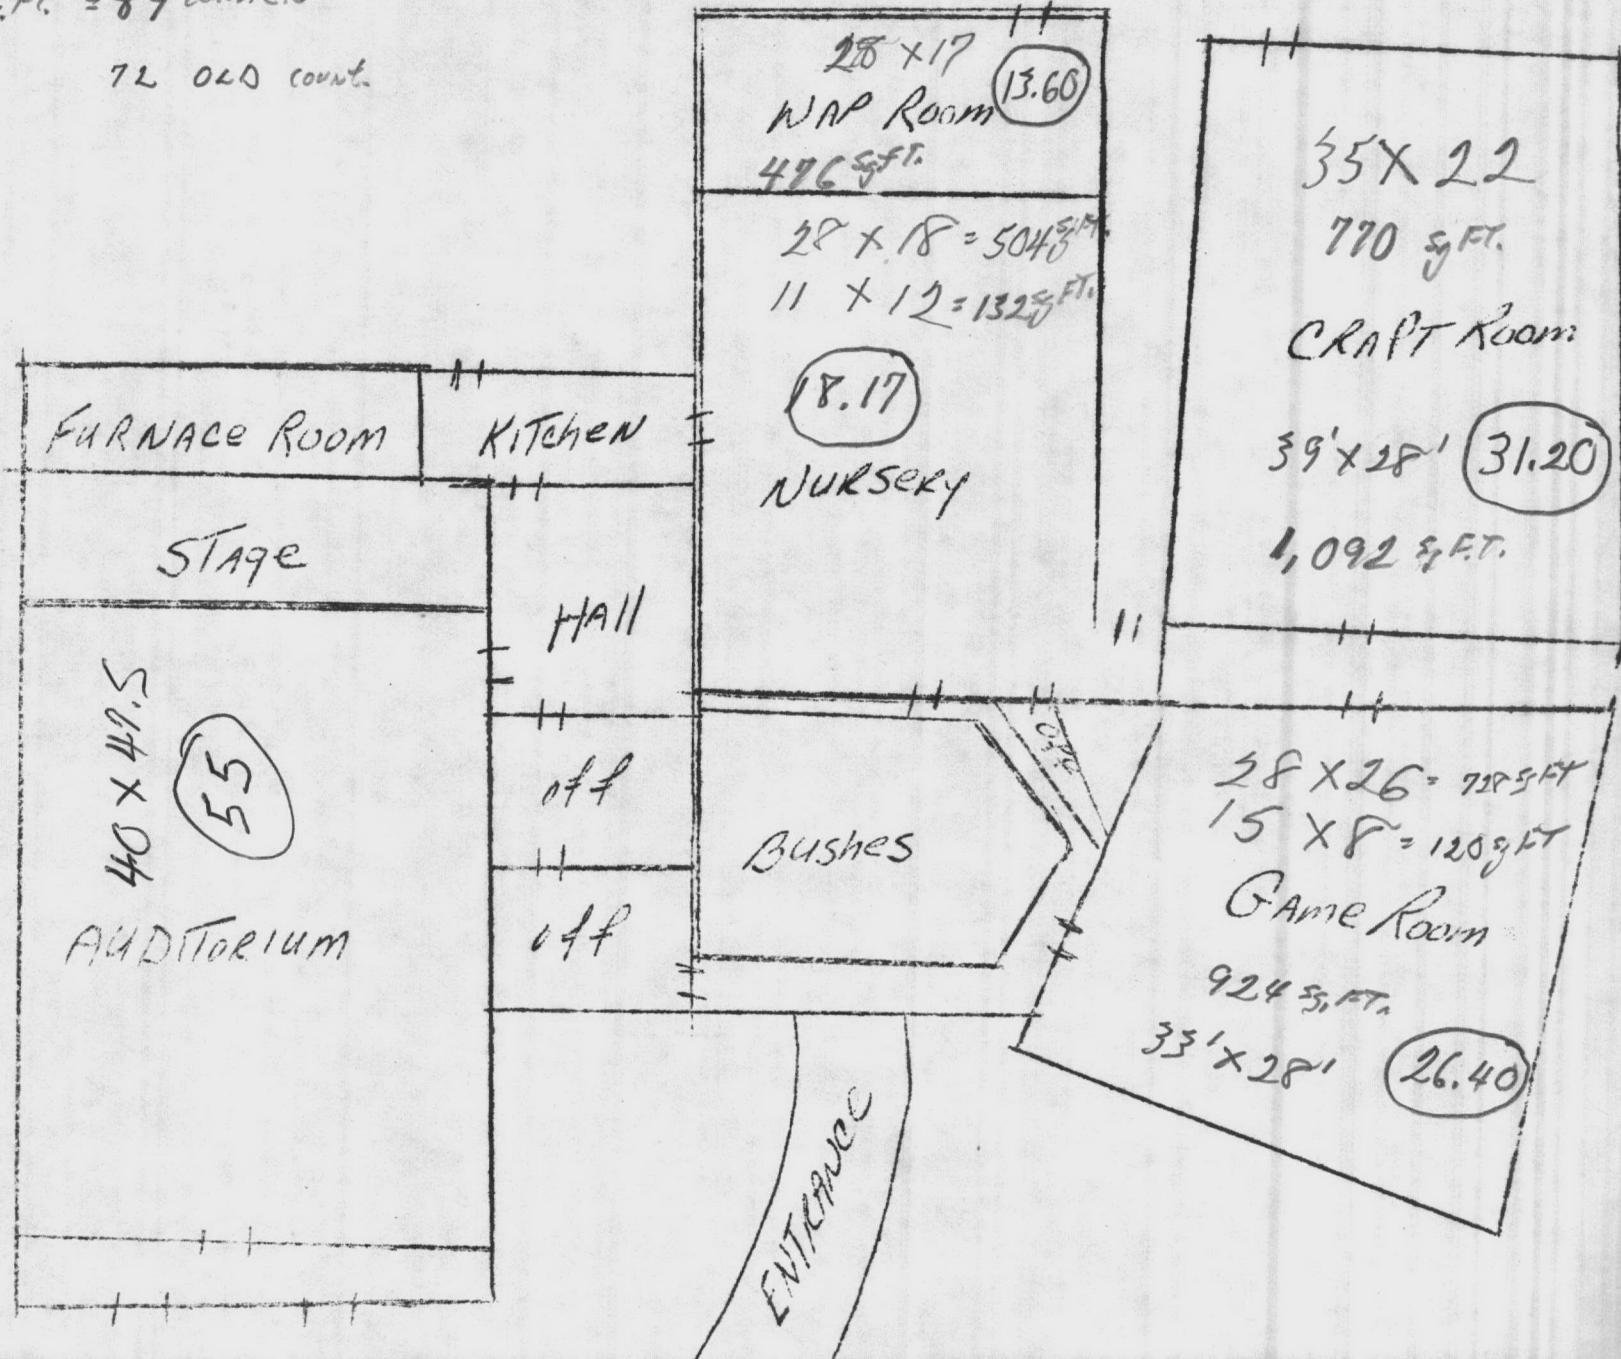 72 OLD count.
28 x 17
13.60
NAP Room
476 sqFT.
28 x 18 = 504 sqFT.
11 x 12 = 132 sqFT.
18.17
NURSERY
35 X 22
770 sqFT.
CRAFT Room
39' x 28'
31.20
1,092 sqFT.
FURNACE ROOM
KITCHEN
STAGE
HALL
40 x 47.5
55
AUDITORIUM
off
off
off
Bushes
28 x 26 = 728 sqFT
15 x 8 = 120 sqFT
GAME Room
924 sq.FT.
33' x 28'
26.40
ENTRANCE